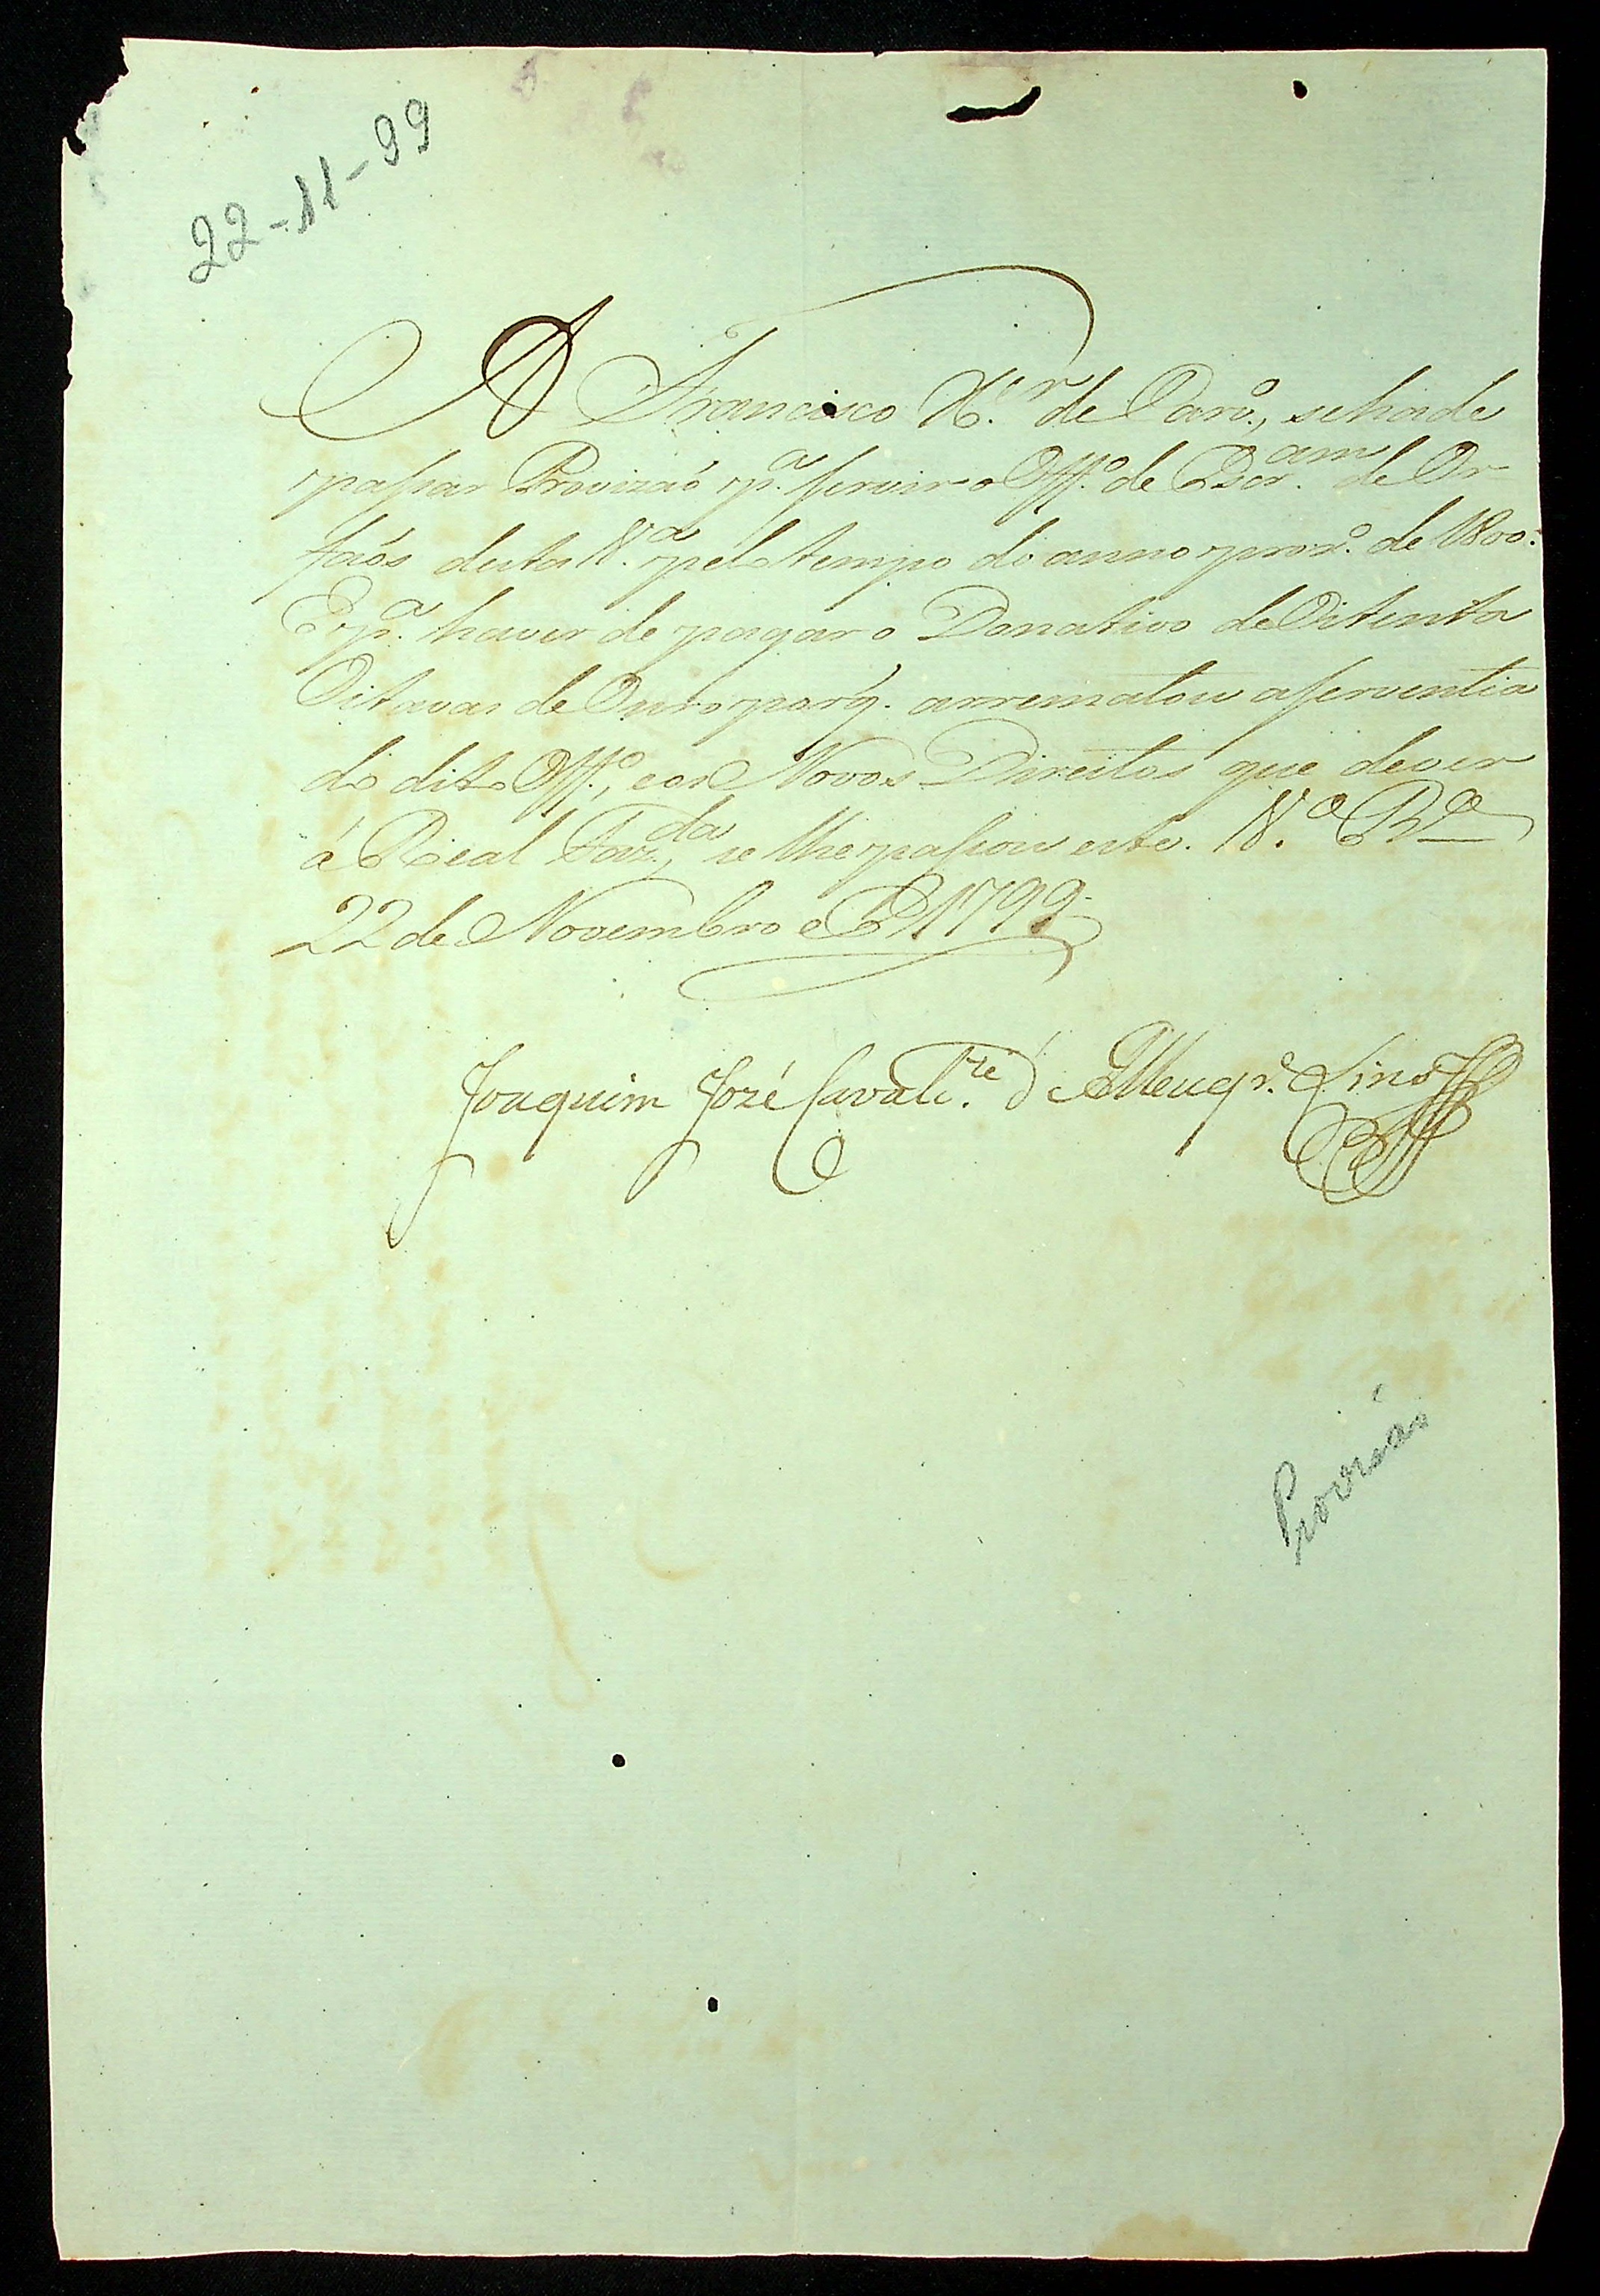 22-11-99
A Francisco X.er de Barо., se ha de
passar Provizaõ p.a servir o Off.o de Escr.am de Or-
faõs desta V.a pelo tempo do anno prox.o de 1800:
E p.a haver de pagar o Donativo de Oitenta
Oitavas de Ouro porq. arrematou a serventia
do dito Off.o, e os Novos Direitos que dever
á Real Faz.da, se lhe passou este. V.a R.a
22 de Novembro de 1799.
Joaquim José Cavalc.te d'Albuqr.e Lins
Provisão